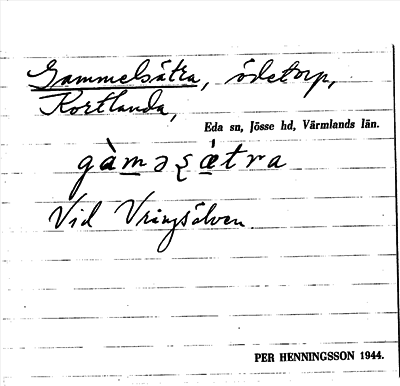 Gammelsätra, ödetorp,
Kortlanda,
Eda sn, Jösse hd, Värmlands län.
gàməʂǽtra
Vid Vringsälven.
PER HENNINGSSON 1944.